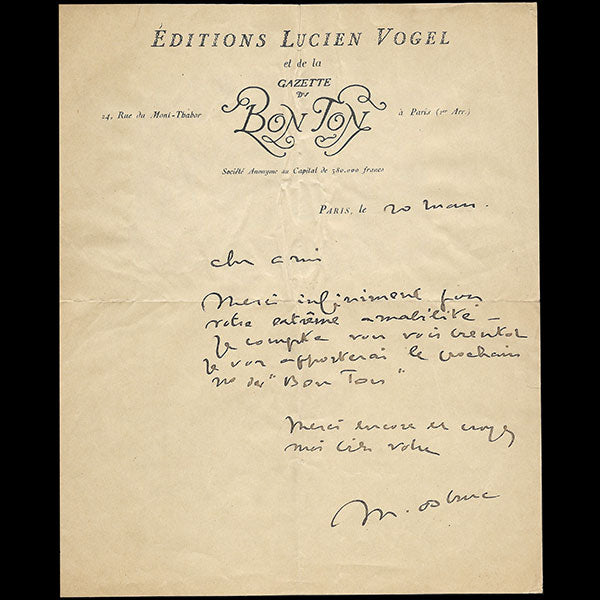 ÉDITIONS LUCIEN VOGEL
et de la
GAZETTE
DU
BON TON
24, Rue du Mont-Thabor
à Paris (1er Arr.)
Société Anonyme au Capital de 380.000 francs
PARIS, le 20 mars.
cher ami
Merci infiniment pour
votre extrême amabilité —
Je compte vous voir bientôt
je vous apporterai le prochain
no du "Bon Ton"
Merci encore et croyez
moi bien votre
M.